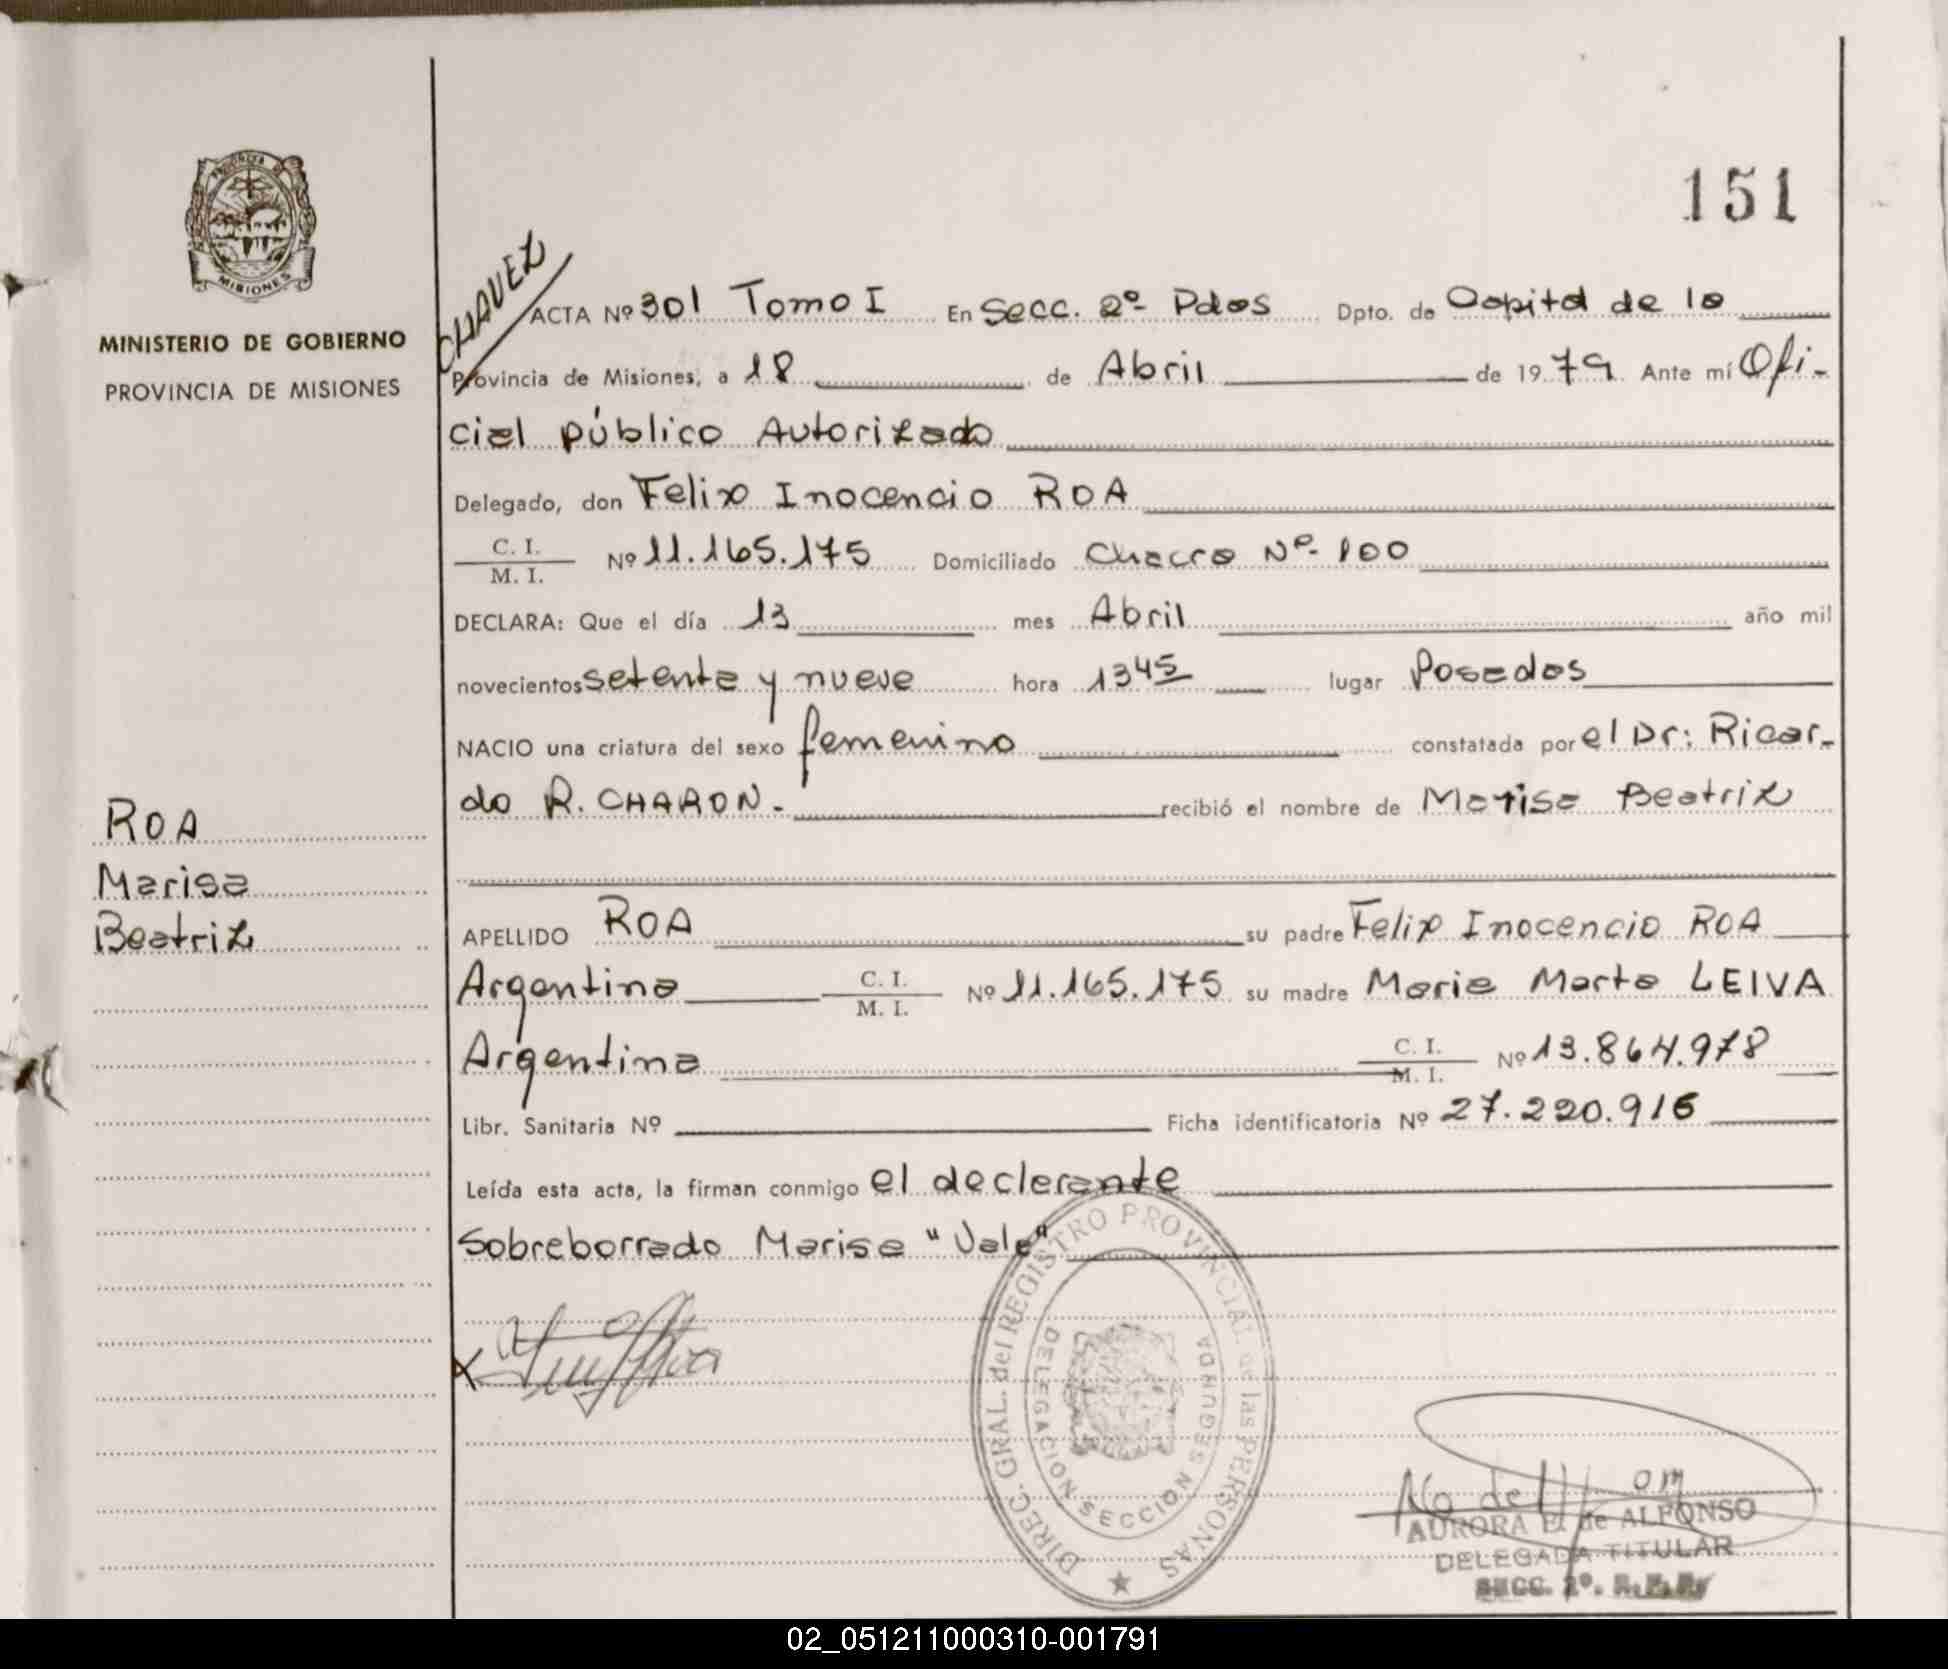 151
PROVINCIA DE
MISIONES
MINISTERIO DE GOBIERNO
PROVINCIA DE MISIONES
CHAVEZ
ACTA Nº 301 Tomo I En Secc. 2º- Pdas Dpto. de Capital de la
Provincia de Misiones, a 18 de Abril de 1979 Ante mí Ofi-
cial público Autorizado
Delegado, don Felix Inocencio ROA
C. I.
M. I. Nº 11.165.175 Domiciliado Chacra Nº- 100
DECLARA: Que el día 13 mes Abril año mil
novecientos setenta y nueve hora 13 45 lugar Posadas
NACIO una criatura del sexo femenino constatada por el Dr: Ricar-
do R. CHARON.- recibió el nombre de Marisa Beatriz
ROA
Marisa
Beatriz
APELLIDO ROA su padre Felix Inocencio ROA
Argentino C. I.
M. I. Nº 11.165.175 su madre Maria Marta LEIVA
Argentina C. I.
M. I. Nº 13.864.978
Libr. Sanitaria Nº Ficha identificatoria Nº 27.220.916
Leída esta acta, la firman conmigo el declarante
Sobreborrado Marisa "Vale"
DIREC. GRAL. del REGISTRO PROVINCIAL de las PERSONAS
DELEGACION SECCION SEGUNDA
AURORA E. de ALFONSO
DELEGADA TITULAR
SECC. 2º. R.P.P.
02_051211000310-001791